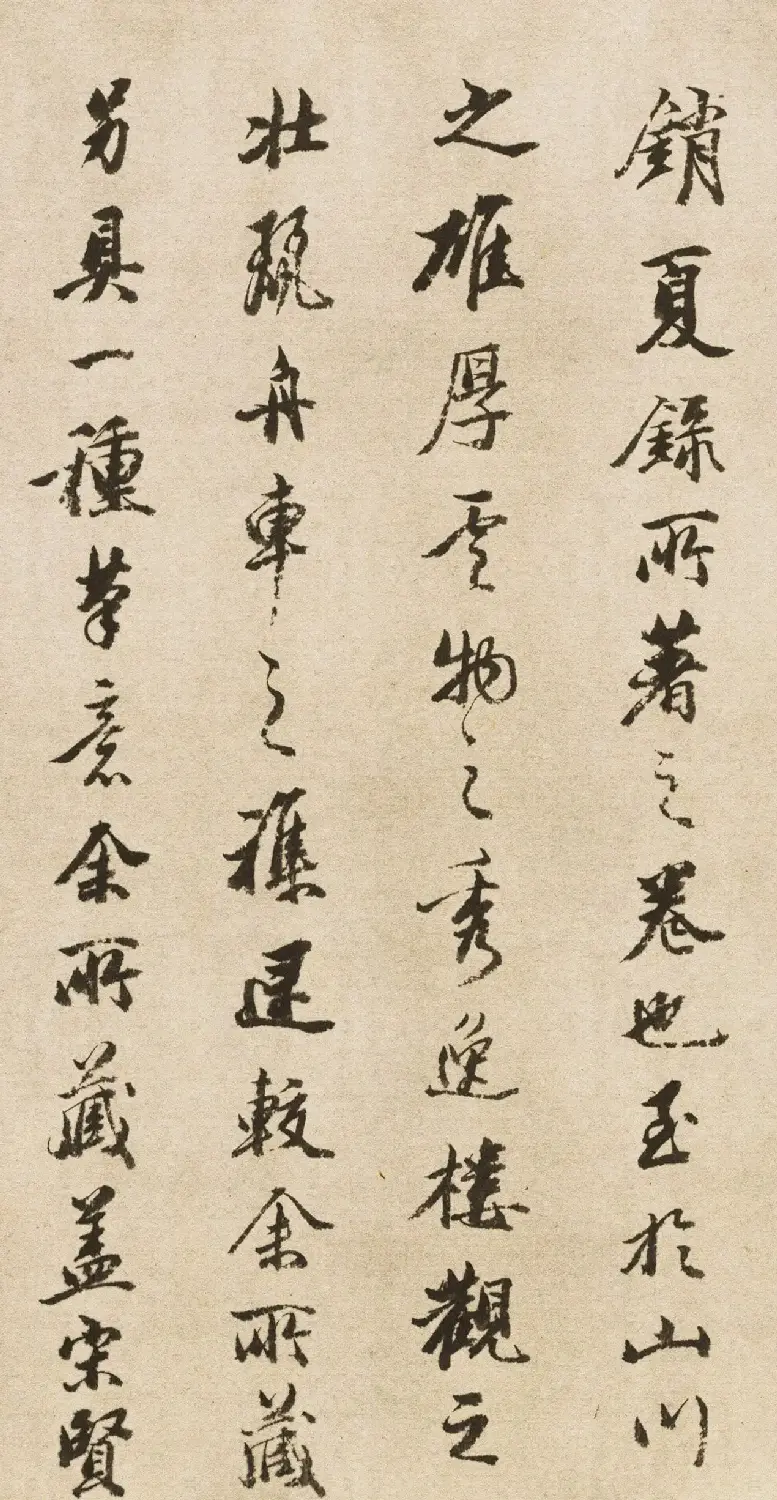 銷夏錄所著之卷也至於山川
之雄厚雲物之秀逸樓觀之
壯麗舟車之穠遲較余所藏
另具一種筆意余所藏蓋宋賢